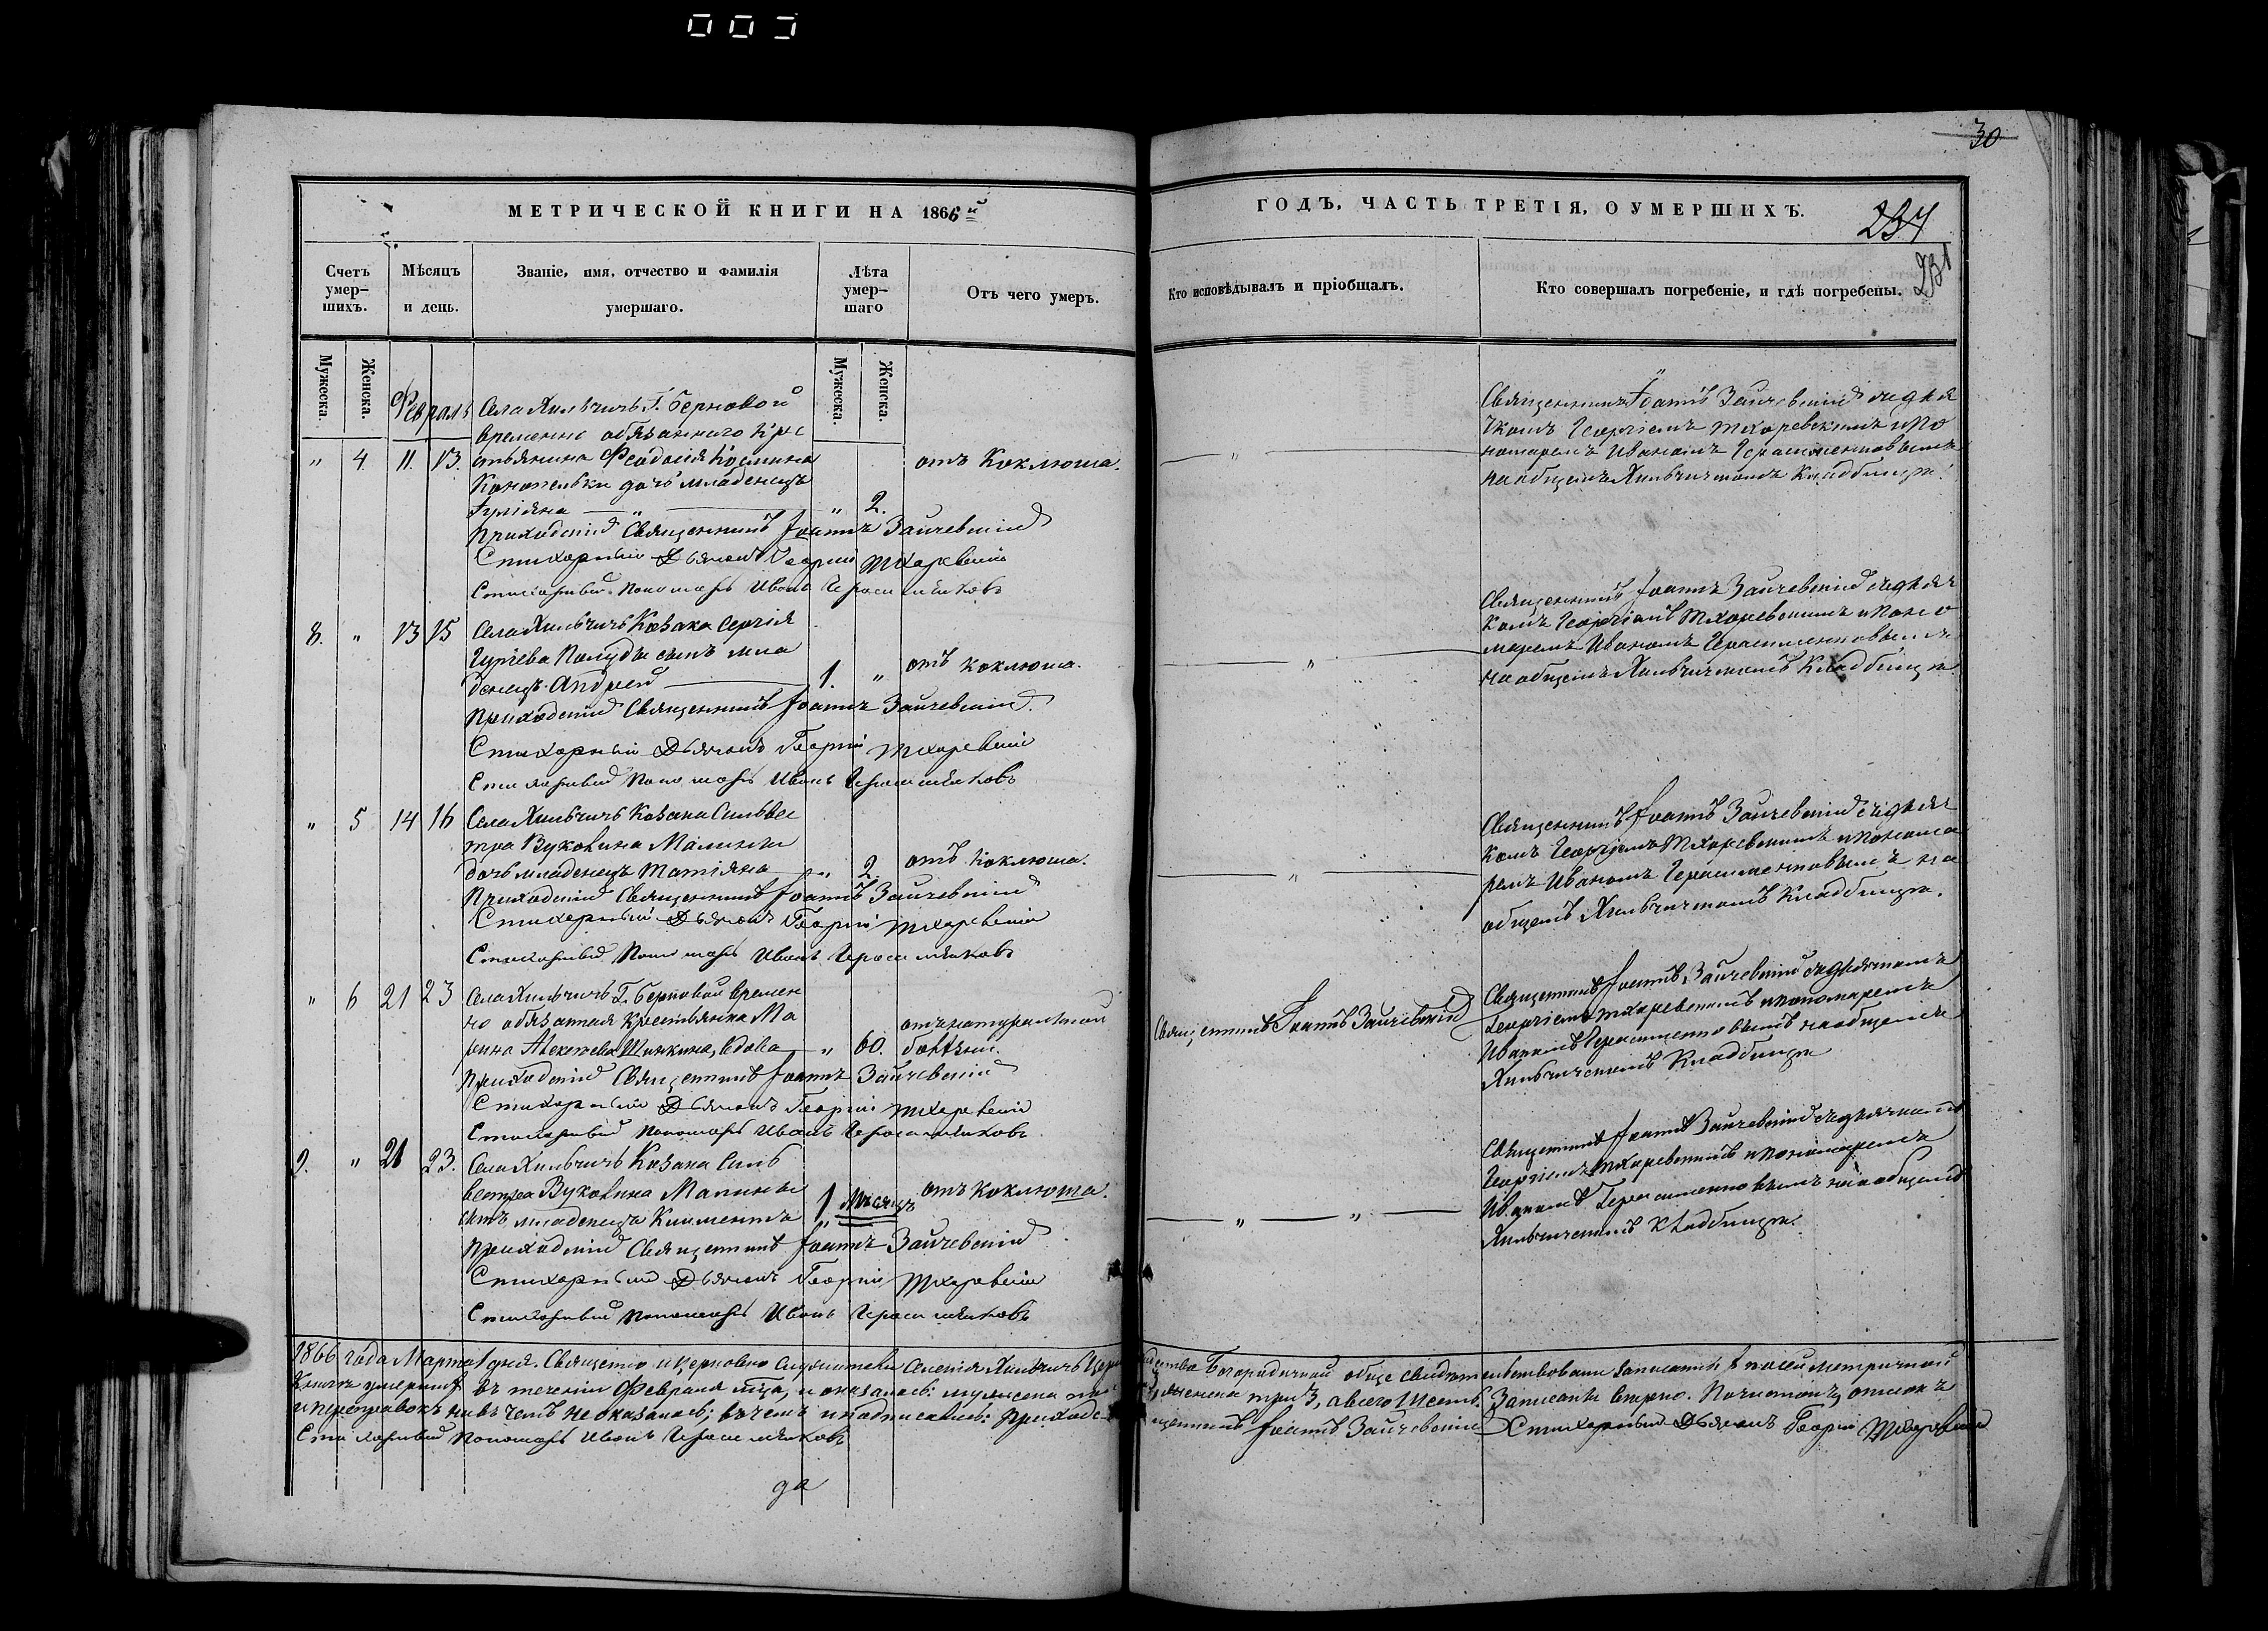 30
МЕТРИЧЕСКОЙ КНИГИ НА 1866й
ГОДЪ, ЧАСТЬ ТРЕТІЯ, О УМЕРШИХЪ.
234
231
Счетъ умер-
шихъ.
Мѣсяцъ
и день.
Званіе, имя, отчество и фамилія
умершаго.
Лѣта
умер-
шаго
Отъ чего умеръ.
Кто исповѣдывалъ и пріобщалъ.
Кто совершалъ погребеніе, и гдѣ погребены.
Мужеска.
Женска.
Мужеска.
Женска.
Февраль
Села Хильчичъ Г. Берновой
временно обязаннаго кре
" 4. 11. 13. стьянина Феодосія Космина
отъ Коклюша.
дочь младенецъ
Іуліяна " 2.
Приходскій Священникъ Іоаннъ Зайчевскій
Стихарный Дьячокъ Георгій Тхоревскій
Стихарный Пономарь Иванъ Герасименковъ
Священникъ Іоаннъ Зайчевскій съ дья
чкомъ Георгіемъ Тхоревскимъ и По
номаремъ Иваномъ Герасименковымъ
на общемъ Хильчичскомъ Кладбищѣ.
8. " 13 15 Села Хильчичъ Козака Сергія
Гуріева сынъ мла
денецъ Андрей 1. " отъ коклюша.
Приходскій Священникъ Іоаннъ Зайчевскій.
Стихарный Дьячокъ Георгій Тхоревскій
Стихарный Пономарь Иванъ Герасименковъ
Священникъ Іоаннъ Зайчевскій съ дьяч
комъ Георгіемъ Тхоревскимъ и Поно
маремъ Иваномъ Герасименковымъ
на общемъ Хильчичскомъ Кладбищѣ.
" 5 14 16 Села Хильчичъ Козака Сильвес
тра Вуколина Малинки
дочь младенецъ Татіяна " 2. отъ Коклюша.
Приходскій Священникъ Іоаннъ Зайчевскій
Стихарный Дьячокъ Георгій Тхоревскій
Стихарный Пономарь Иванъ Герасименковъ
Священникъ Іоаннъ Зайчевскій съ дьяч
комъ Георгіемъ Тхоревскимъ и Понома
ремъ Иваномъ Герасименковымъ на
общемъ Хильчичскомъ Кладбищѣ.
" 6 21 23 Села Хильчичъ Г. Берновой времен
но обязанная крестьянка Ма
рина Алексѣева Шишкина, вдова " 60. отъ натуральной
болѣзни.
Приходскій Священникъ Іоаннъ Зайчевскій
Стихарный Дьячокъ Георгій Тхоревскій
Стихарный Пономарь Иванъ Герасименковъ
Священникъ Іоаннъ Зайчевскій
Священникъ Іоаннъ Зайчевскій съ дьячкомъ
Георгіемъ Тхоревскимъ и Пономаремъ
Иваномъ Герасименковымъ на общемъ
Хильчичскомъ Кладбищѣ
9. " 21 23. Села Хильчичъ Козака Силь
вестра Вуколина Малинки
сынъ младенецъ Климентъ 1 мѣсяцъ отъ коклюша.
Приходскій Священникъ Іоаннъ Зайчевскій
Стихарный Дьячокъ Георгій Тхоревскій
Стихарный Пономарь Иванъ Герасименковъ
Священникъ Іоаннъ Зайчевскій съ дьячкомъ
Георгіемъ Тхоревскимъ и Пономаремъ
Иваномъ Герасименковымъ на общемъ
Хильчичскомъ Кладбищѣ.
1866 года Марта 1 дня. Священно и церковно служители Села Хильчичъ Рождества Богородичной обще свидѣтельствовали записанныхъ по сей метричной
книгѣ умершихъ въ теченіи Февраля м-ца, и оказалось: мужеска три женска три 3, а всего шесть. Записаны вѣрно. Почистокъ, описокъ
и переправокъ ни въ чемъ не оказалось; въ чемъ и подписались: Приходскій Священникъ Іоаннъ Зайчевскій Стихарный Дьячокъ Георгій Тхоревскій
Стихарный Пономарь Иванъ Герасименковъ
да